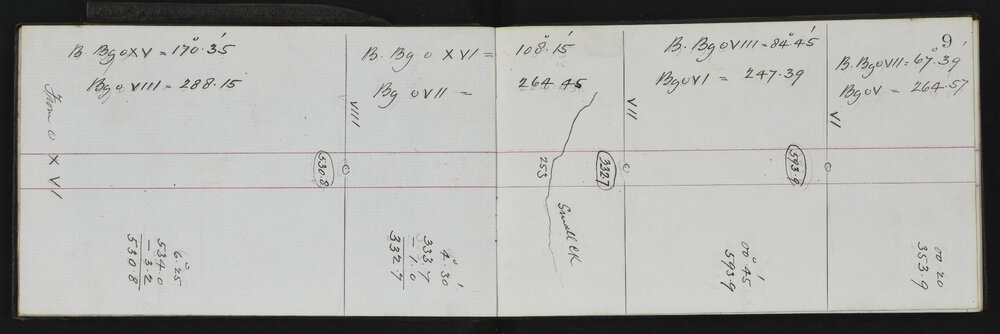 9
B. Bg o XV = 170°.35'
Bg o VIII = 288.15
From o X VI
530.8
6°.25
534.0
- 3.2
530.8
B. Bg o XVI = 108°.15'
Bg o VII = 264.45
VIII
253
Small CK
332.7
4°.30'
333.7
- 1.0
332.7
B. Bg o VIII = 84°.45'
Bg o VI = 247.39
VII
593.9
00°.45'
593.9
B. Bg o VII = 67°.39'
Bg o V = 264.57
VI
00 20
353.9